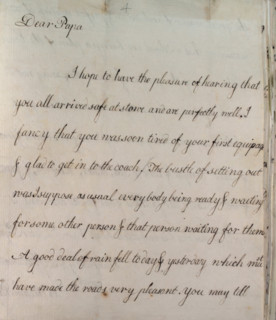 4
Dear Papa
I hope to have the pleasure of hearing that
you all arrived safe at stowe and are perfectly well. I
fancy that you was soon tired of your first equipag
& glad to get in to the coach, The bustle of setting out
was I suppose as usual everybody being ready & waiting
for some other person & that person waiting for them
A good deal of rain fell today & yesterday which
have made the roads very pleasant. You may tell